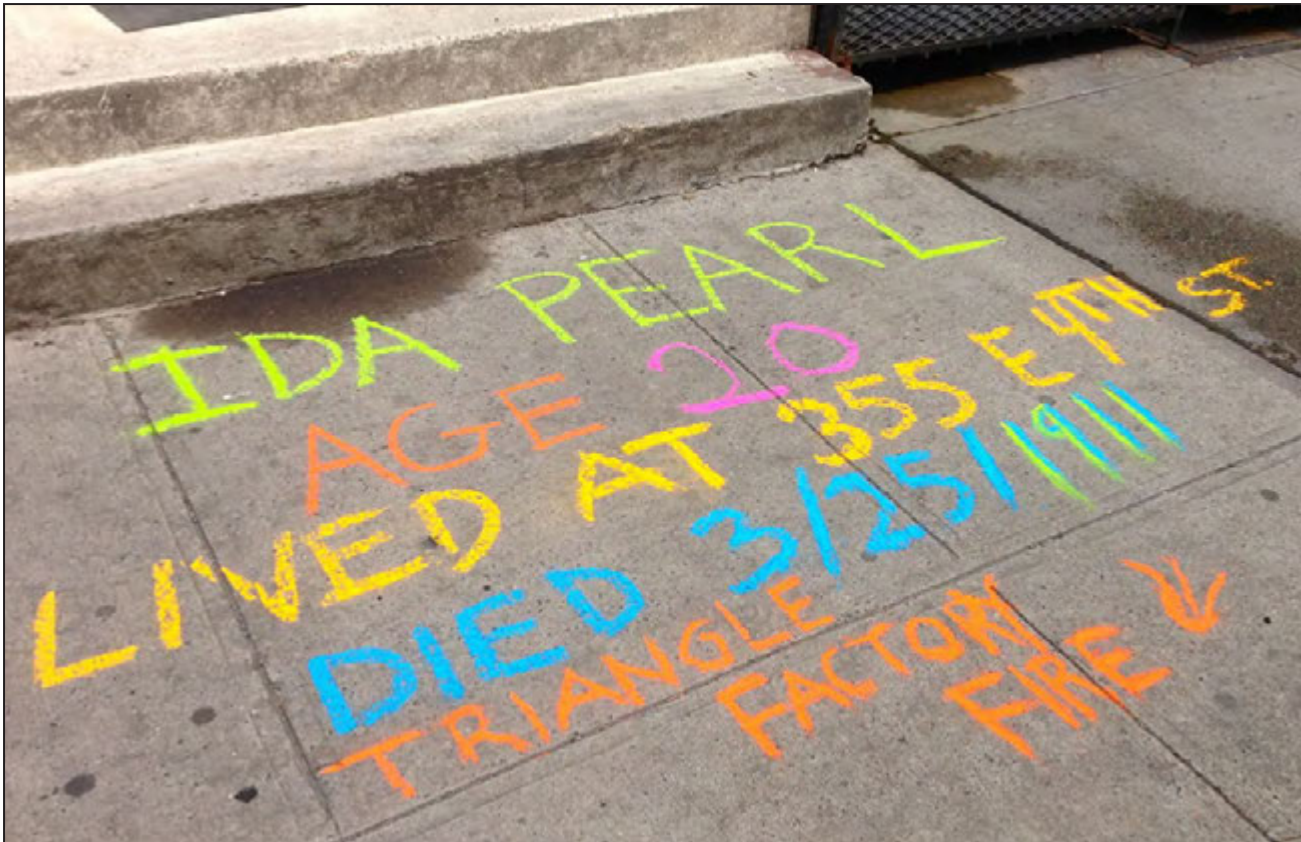 IDA PEARL
AGE 20
LIVED AT 355 E 4TH ST.
DIED 3/25/1911
TRIANGLE FACTORY
FIRE